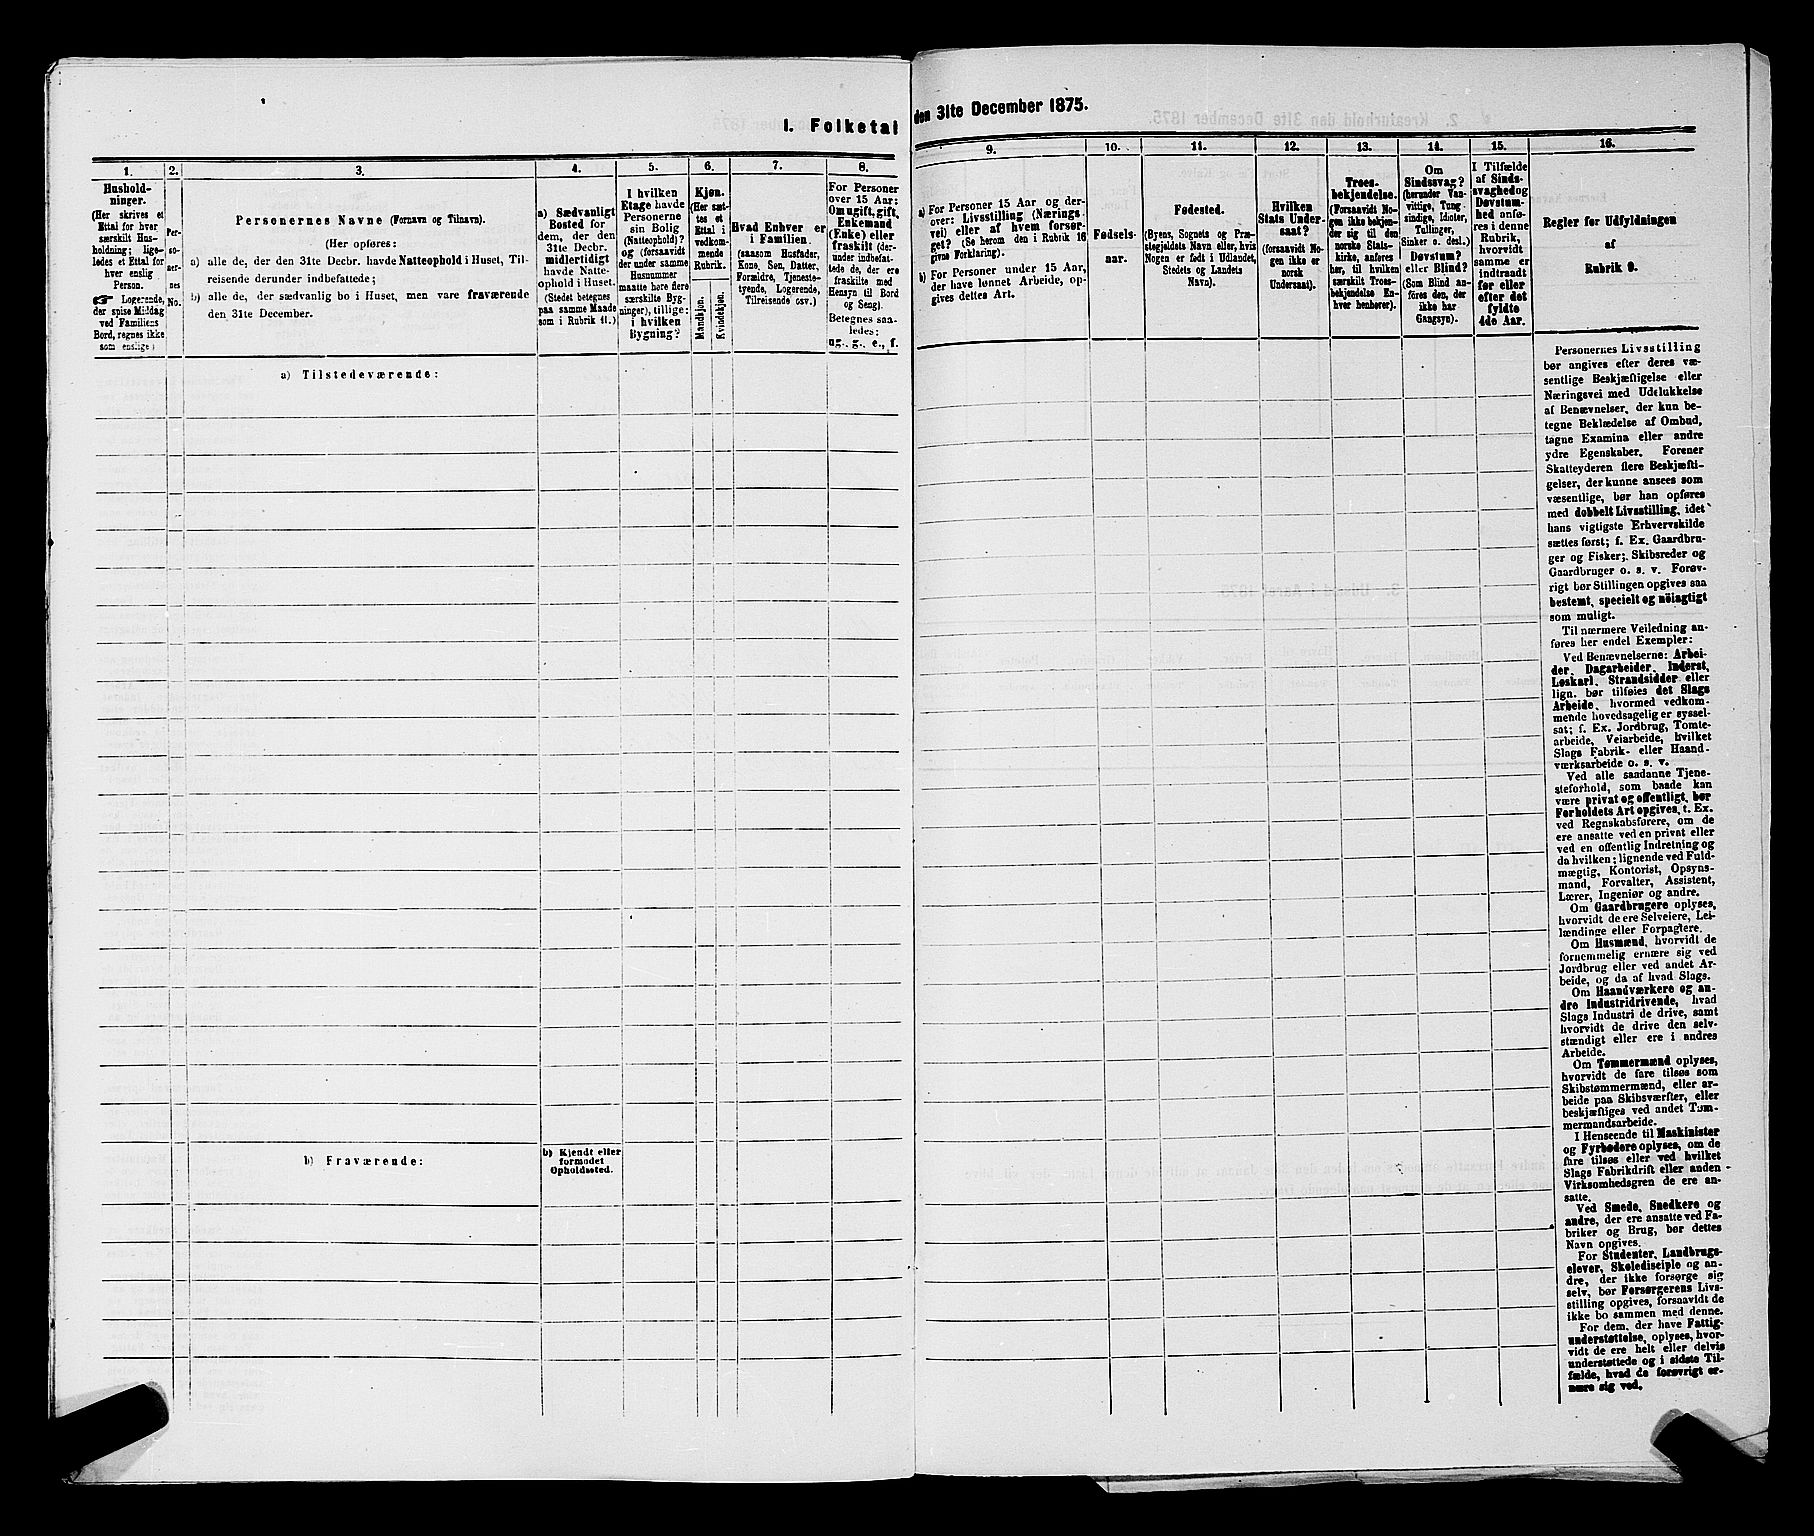 1. Folketal
den 31te December 1875.
1.
Hushold-
ninger.
(Her skrives et
Ettal for hver
særskilt Hus-
holdning; lige-
ledes et Ettal for
hver enslig
Person.
☛ Logerende,
der spise Middag
ved Familiens
Bord, regnes ikke
som enslige)
2.
Per-
so-
ner-
nes
No.
3.
Personernes Navne (Fornavn og Tilnavn).
(Her opføres:
a) alle de, der den 31te Decbr. havde Natteophold i Huset, Til-
reisende derunder indbefattede;
b) alle de, der sædvanlig bo i Huset, men vare fraværende
den 31te December.
4.
a) Sædvanligt
Bosted for
dem, der den
31te Decbr.
midlertidigt
havde Natte-
ophold i Huset.
(Stedet betegnes
paa samme Maade
som i Rubrik 11.)
5.
I hvilken
Etage havde
Personerne
sin Bolig
(Natteophold)?
og (forsaavidt
der under samme
Husnummer
maatte høre flere
særskilte Byg-
ninger), tillige:
i hvilken
Bygning?
6.
Kjøn.
(Her sæt-
tes et
Ettal i
vedkom-
mende
Rubrik.
Mandkjøn.
Kvindekjøn.
7.
Hvad Enhver er
i Familien.
(saasom Husfader,
Kone, Søn, Datter,
Forældre, Tjeneste-
tyende, Logerende,
Tilreisende osv.)
8.
For Personer
over 15 Aar:
Om ugift, gift,
Enkemand
(Enke) eller
fraskilt (der-
under indbefat-
tede de, der ere
fraskilte med
Hensyn til Bord
og Seng)
Betegnes saa-
ledes:
ug., g., e., f.
9.
a) For Personer 15 Aar og der-
over: Livsstilling (Nærings-
vei) eller af hvem forsør-
get? (Se herom den i Rubrik 16
givne Forklaring).
b) For Personer under 15 Aar,
der have lønnet Arbeide, op-
gives dettes Art.
10.
Fødsels-
aar.
11.
Fødested.
(Byens, Sognets og Præ-
stegjeldets Navn eller, hvis
Nogen er født i Udlandet,
Stedets og Landets
Navn).
12.
Hvilken
Stats Under-
saat?
(forsaavidt No-
gen ikke er
norsk
Undersaat).
13.
Troes-
bekjendelse.
(Forsaavidt No-
gen ikke bekjen-
der sig til den
norske Stats-
kirke, anføres
her, til hvilken
særskilt Troes-
bekjendelse En-
hver henhører).
14.
Om
Sindssvag?
(herunder Van-
vittige, Tung-
sindige, Idioter,
Tullinger,
Sinker o. desl.)
Døvstum?
eller Blind?
(Som Blind an-
føres den, der
ikke har
Gangsyn).
15.
I Tilfælde
af Sinds-
svaghed og
Døvstum-
hed anfø-
res i denne
Rubrik,
hvorvidt
samme er
indtraadt
før eller
efter det
fyldte
4de Aar.
16.
Regler for Udfyldningen
af
Rubrik 9.
a) Tilstedeværende:
b) Fraværende:
b) Kjendt eller
formodet
Opholdssted.
Personernes Livsstilling
bør angives efter deres væ-
sentlige Beskjæftigelse eller
Næringsvei med Udelukkelse
af Benævnelser, der kun be-
tegne Beklædelse af Ombud,
tagne Examina eller andre
ydre Egenskaber. Forener
Skatteyderen flere Beskjæfti-
gelser, der kunne ansees som
væsentlige, bør han opføres
med dobbelt Livsstilling, idet
hans vigtigste Erhvervskilde
sættes først; f. Ex. Gaardbru-
ger og Fisker; Skibsreder og
Gaardbruger o. s. v. Forøv-
rigt bør Stillingen opgives saa
bestemt, specielt og nöiagtigt
som muligt.
Til nærmere Veiledning an-
føres her endel Exempler:
Ved Benævnelserne: Arbei-
der, Dagarbeider, Inderst,
Løskarl, Strandsidder eller
lign. bør tilføies det Slags
Arbeide, hvormed vedkom-
mende hovedsagelig er syssel-
sat; f. Ex. Jordbrug, Tomte-
arbeide, Veiarbeide, hvilket
Slags Fabrik- eller Haand-
værksarbeide o. s. v.
Ved alle saadanne Tjene-
steforhold, som baade kan
være privat og offentligt, bør
Forholdets Art opgives, t. Ex.
ved Regnskabsførere, om de
ere ansatte ved en privat eller
ved en offentlig Indretning og
da hvilken; lignende ved Fuld-
mægtig, Kontorist, Opsyns-
mand, Forvalter, Assistent,
Lærer, Ingeniør og andre.
Om Gaardbrugere oplyses,
hvorvidt de ere Selveiere, Lei-
lændinge eller Forpagtere.
Om Husmænd, hvorvidt de
fornemmelig ernære sig ved
Jordbrug eller ved andet Ar-
beide, og da af hvad Slags.
Om Haandværkere og an-
dre Industridrivende, hvad
Slags Industri de drive, samt
hvorvidt de drive den selv-
stændigt eller ere i andres
Arbeide.
Om Tømmermænd oplyses,
hvorvidt de fare tilsøs som
Skibstømmermænd, eller ar-
beide paa Skibsværfter, eller
beskjæftiges ved andet Tøm-
mermandsarbeide.
I Henseende til Maskinister
og Fyrbødere oplyses, om de
fare tilsøs eller ved hvilket
Slags Fabrikdrift eller anden
Virksomhedsgren de ere an-
satte.
Ved Smede, Snedkere og
andre, der ere ansatte ved Fa-
briker og Brug, bør dettes
Navn opgives.
For Studenter, Landbrugs-
elever, Skoledisciple og an-
dre, der ikke forsørge sig
selv, bør Forsørgerens Livs-
stilling opgives, forsaavidt de
ikke bo sammen med denne.
For dem, der have Fattig-
understøttelse, oplyses, hvor-
vidt de ere helt eller delvis
understøttede og i sidste Til-
fælde, hvad de forøvrigt er-
nære sig ved.